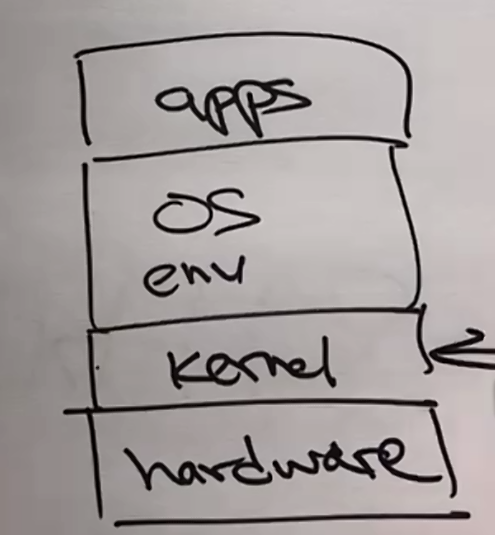 apps
OS
env
kernel
hardware